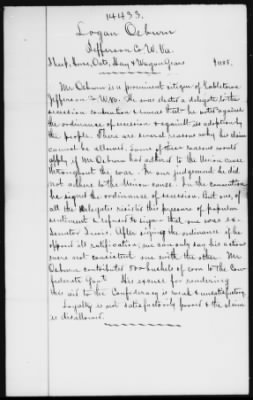 14433.
Logan Osburn
Jefferson Co W. Va.
Sheep, horse, Oats, Hay & Wagon Gears $
Mr Osburn is a prominent citizen of Cabletown
Jefferson Co W.Va. He was elected a delegate to the
secession convention & swears that he voted against
the ordinance of secession & against its adoption by
the people. There are several reasons why his claim
cannot be allowed. Some of these reasons would
apply if Mr Osburn has adhered to the Union cause
throughout the war. In our judgement he did
not adhere to the Union cause. In the convention
he signed the ordinance of secession. But one of
all the delegates resisted this pressure of public
sentiment & refused to sign & that one was ex-
Senator Lewis. After signing the ordinance if he
opposed its ratification, we can only say his actions
were not consistent one with the other. Mr
Osburn contributed 500 bushels of corn to the Con-
federate Govt. His excuse for rendering
this aid to the Confederacy is weak & unsatisfactory.
Loyalty is not satisfactorily proved & the claim
is disallowed.